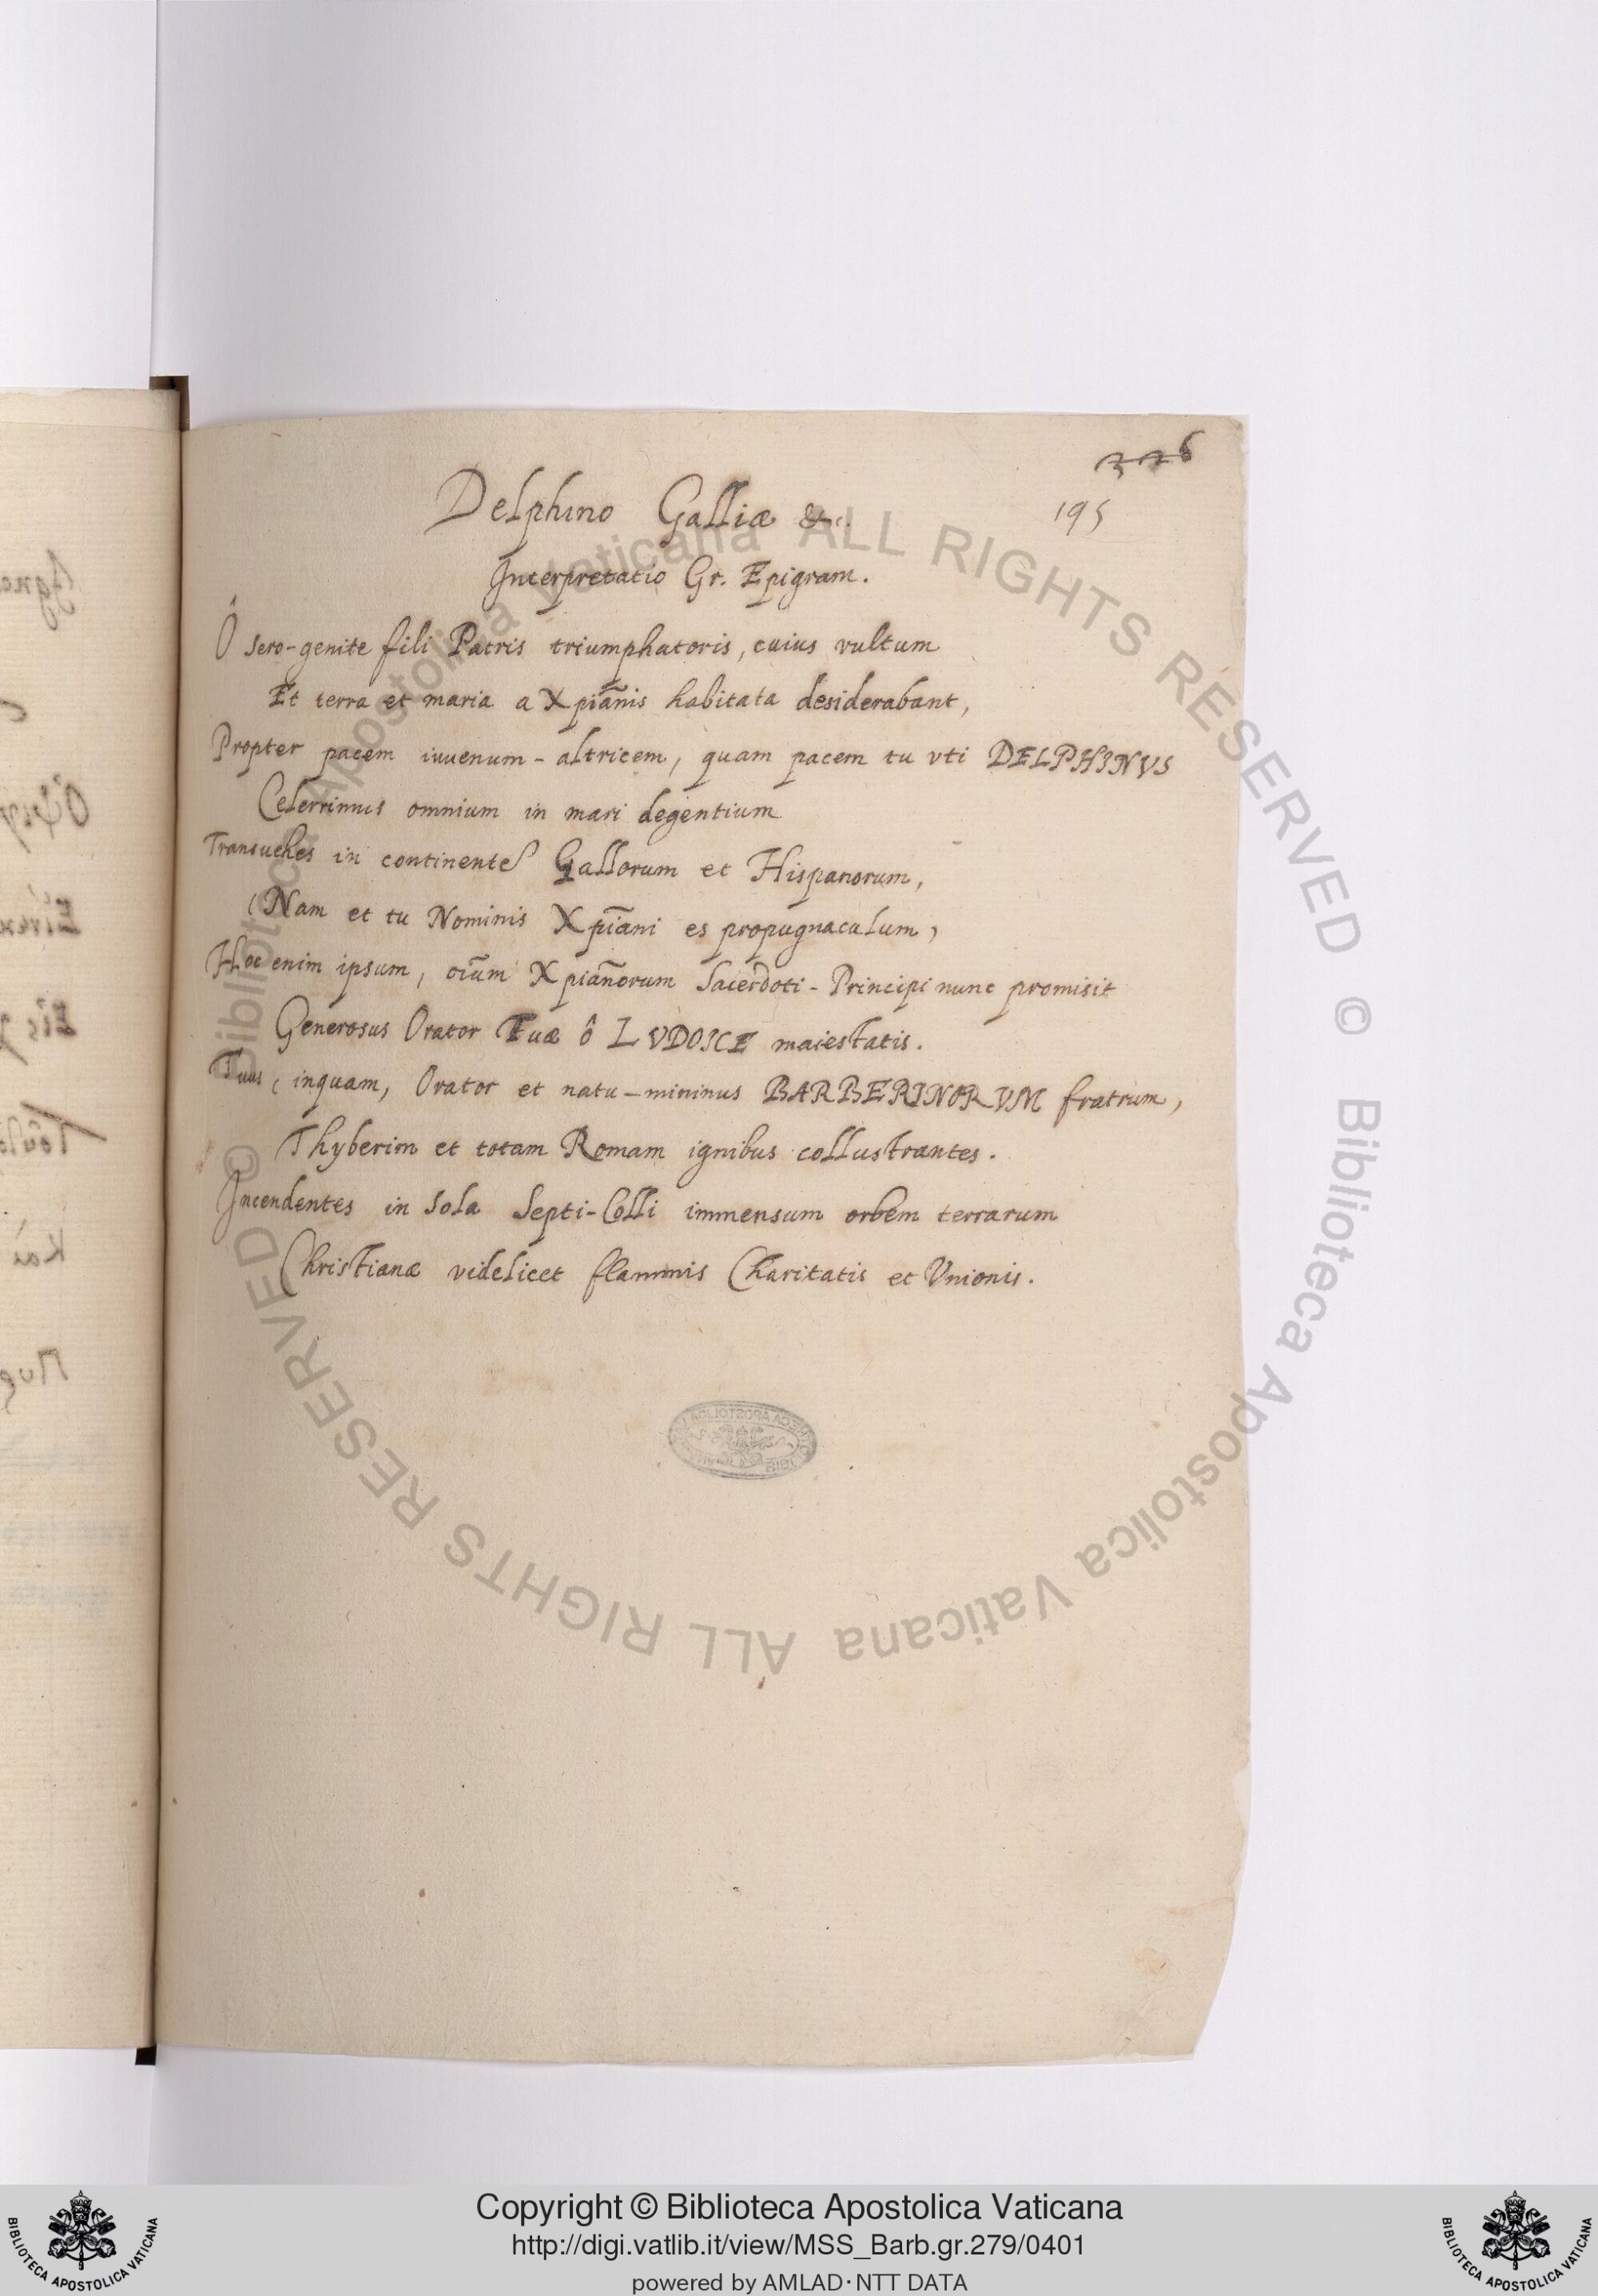 326
195
Delphino Galliæ &c.
Interpretatio Gr. Epigram.
Ó sero-genite fili Patris triumphatoris, cuius vultum
Et terra et maria a Xpiãnis habitata desiderabant,
Propter pacem iuuenum-altricem, quam pacem tu vti DELPHINVS
Celerrimus omnium in mari degentium
Transuehes in continentes Gallorum et Hispanorum,
(Nam et tu Nominis Xpiãni es propugnaculum,
Hoc enim ipsum, oium̃ Xpianõrum Sacerdoti-Principi nunc promisit
Generosus Orator Tuæ ô LVDOICE maiestatis.
Tuus, inquam, Orator et natu-minimus BARBERINORVM fratrum,
Thyberim et totam Romam ignibus collustrantes.
Incendentes in sola Septi-Colli immensum orbem terrarum
Christianæ videlicet flammis Charitatis et Vnionis.
© Biblioteca Apostolica Vaticana ALL RIGHTS RESERVED © Biblioteca Apostolica Vaticana ALL RIGHTS RESERVED
Copyright © Biblioteca Apostolica Vaticana
http://digi.vatlib.it/view/MSS_Barb.gr.279/0401
powered by AMLAD·NTT DATA
BIBLIOTECA APOSTOLICA VATICANA
BIBLIOTECA APOSTOLICA VATICANA